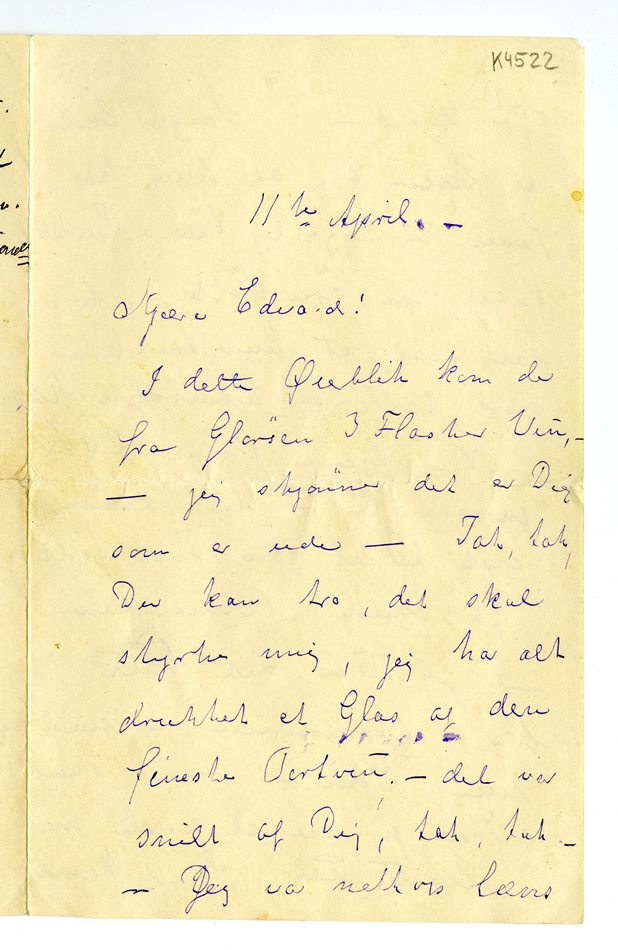 K4522
11te April. –
Kjære Edvard!
I dette Øieblik kom de
fra 3 Flasker Vin, –
– jeg skjönner det er Dig
som er ude – Tak, tak,
Du kan tro, det skal
styrke mig, jeg har alt
drukket et Glas af den
fineste Portvin. – det var
snilt af Dig, tak, tak –
– Jeg var netop